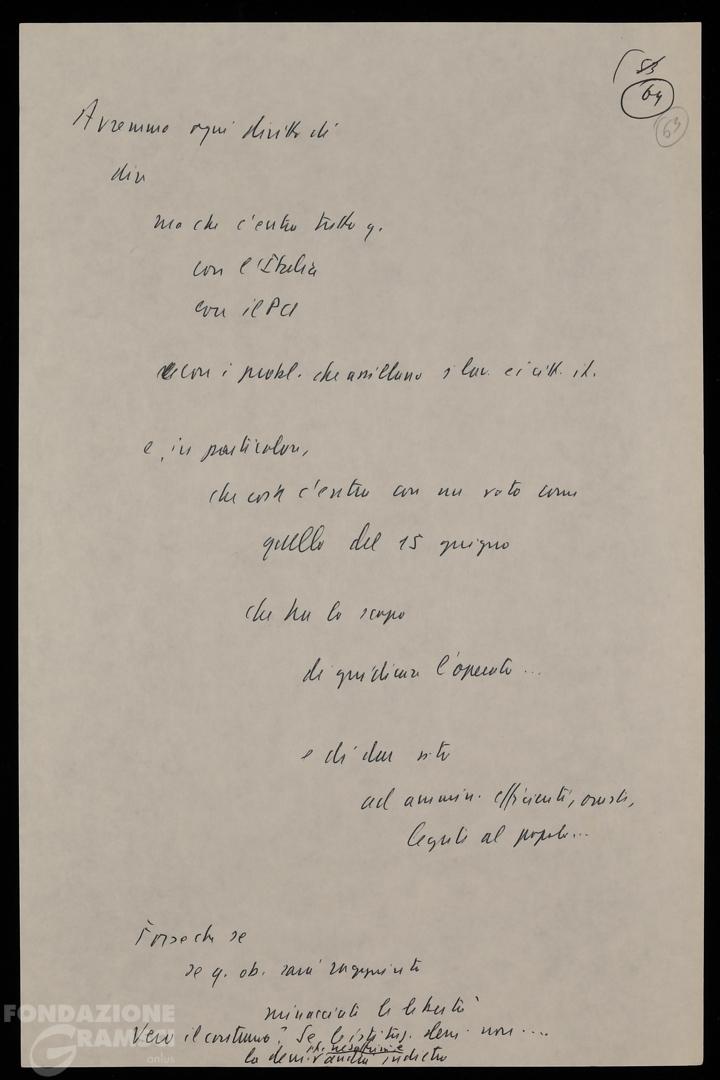 53
64
63
Avremmo ogni diritto di
dire
ma che c'entra tutto q.
con l'Italia
con il PCI
con i probl. che assillano i lav. e i citt. it.
e, in particolare,
che cosa c'entra con un voto come
quello del 15 giugno
che ha lo scopo
di giudicare l'operato...
e di dar vita
ad ammin. efficienti, oneste,
legate al popolo...
Forse che se
se q. ob. sarà raggiunto
minacciata la libertà
Vero il contrario? Se le istituz. dem. non ....
la dem. andrà indietro
FONDAZIONE
GRAMSCI
onlus